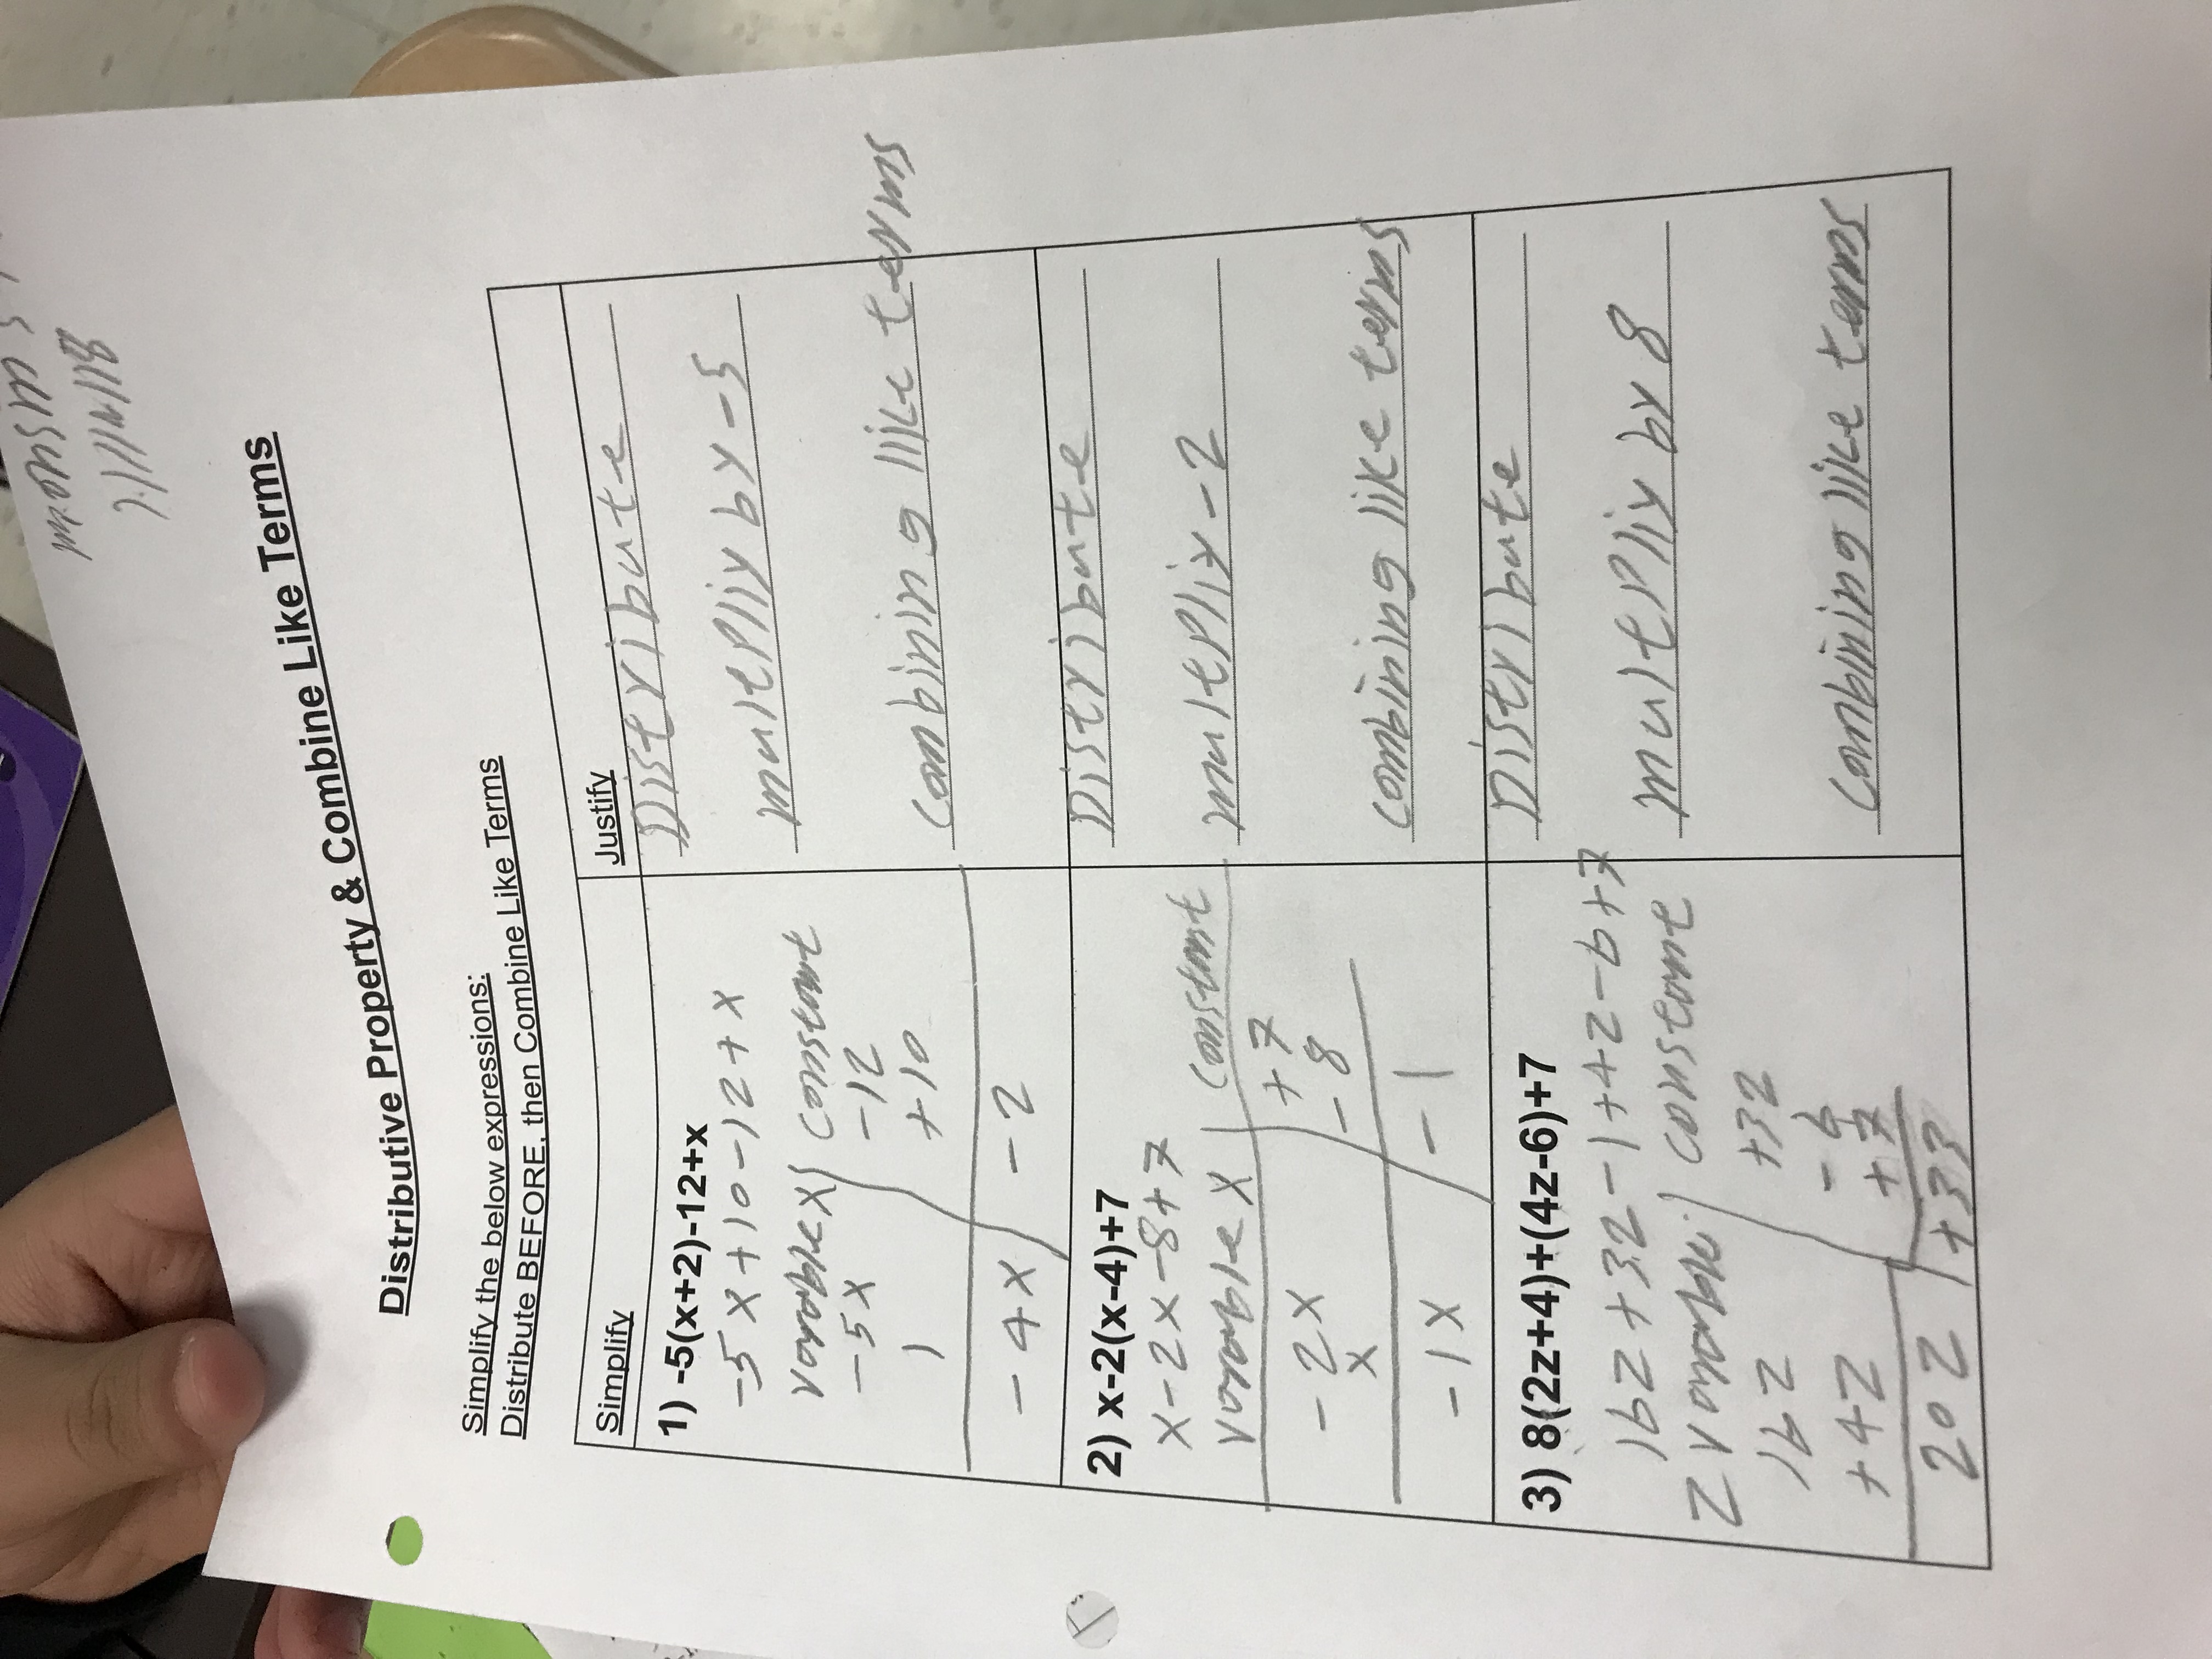 Distributive Property & Combine Like Terms
Simplify the below expressions:
Distribute BEFORE, then Combine Like Terms
Simplify
Justify
1) -5(x+2)-12+x
-5x+10-12+x
Varable x Constant
-5x -12
1 +10
-4x -2
Distribute
multPliy by -5
combining like terms
2) x-2(x-4)+7
x-2x-8+7
Varable x Constant
-2x +7
x -8
-1x -1
Distribute
multPliy-2
combining like terms
3) 8(2z+4)+(4z-6)+7
16z+32-1+4z-6+7
z varable constant
16z +32
-6
+4z +7
20z +33
Distribute
multPliy by 8
combining like terms